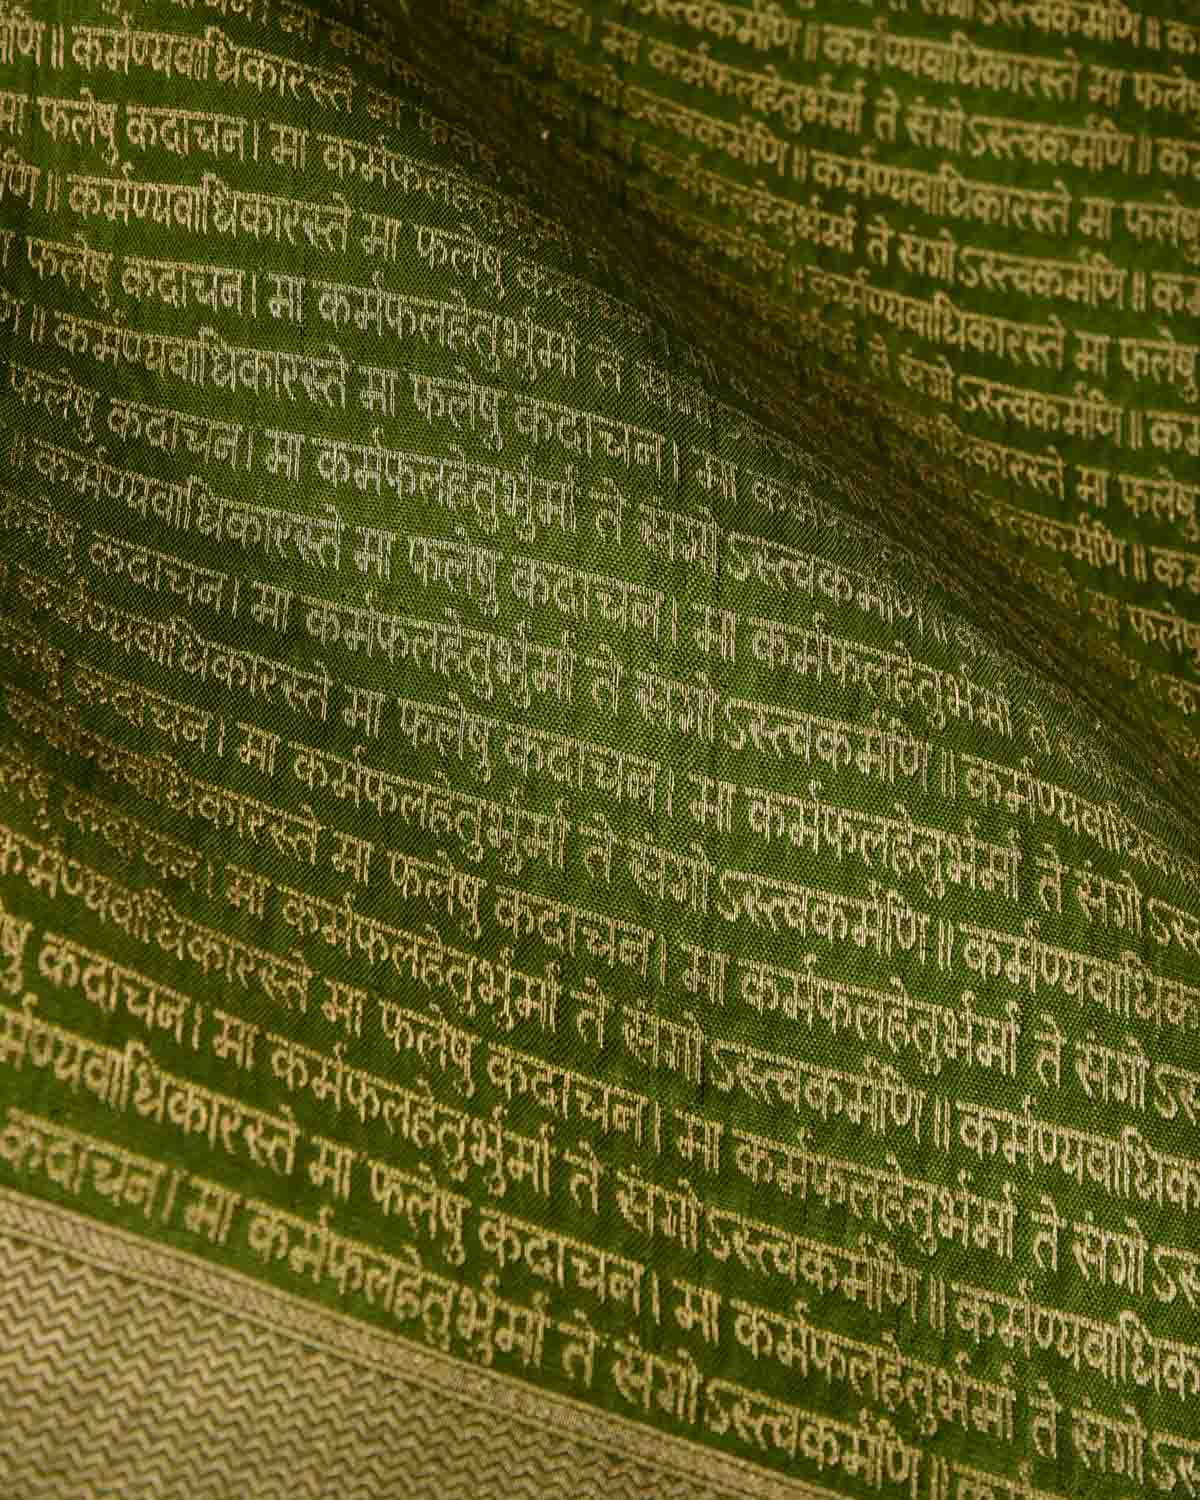 संगोऽस्त्वकर्मणि॥
॥ कर्मण्यवाधिकारस्ते मा
मा कर्मफलहेतुर्भुर्मा ते संगोऽस्त्वकर्मणि॥
॥ कर्मण्यवाधिकारस्ते मा फलेषु
ते संगोऽस्त्वकर्मणि॥
॥ कर्मण्यवाधिकारस्ते मा फलेषु
ते संगोऽस्त्वकर्मणि॥
मा फलेषु
॥ कर्मण्यवाधिकारस्ते मा
मा फलेषु कदाचन। मा कर्मफलहेतु
॥ कर्मण्यवाधिकारस्ते मा फलेषु
फलेषु कदाचन। मा कर्मफलहेतुर्भुर्मा ते
॥ कर्मण्यवाधिकारस्ते मा फलेषु कदाचन। मा
फलेषु कदाचन। मा कर्मफलहेतुर्भुर्मा ते संगोऽस्त्वकर्मणि॥
॥ कर्मण्यवाधिकारस्ते मा फलेषु कदाचन। मा कर्मफलहेतुर्भुर्मा ते
कदाचन। मा कर्मफलहेतुर्भुर्मा ते संगोऽस्त्वकर्मणि॥ कर्मण्यवाधिका
कर्मण्यवाधिकारस्ते मा फलेषु कदाचन। मा कर्मफलहेतुर्भुर्मा ते संगोऽस
कदाचन। मा कर्मफलहेतुर्भुर्मा ते संगोऽस्त्वकर्मणि॥ कर्मण्यवाधिक
कर्मण्यवाधिकारस्ते मा फलेषु कदाचन। मा कर्मफलहेतुर्भुर्मा ते संगोऽस
कदाचन। मा कर्मफलहेतुर्भुर्मा ते संगोऽस्त्वकर्मणि॥ कर्मण्यवाधिक
कर्मण्यवाधिकारस्ते मा फलेषु कदाचन। मा कर्मफलहेतुर्भुर्मा ते संगोऽस
षु कदाचन। मा कर्मफलहेतुर्भुर्मा ते संगोऽस्त्वकर्मणि॥ कर्मण्यवाधिक
र्मण्यवाधिकारस्ते मा फलेषु कदाचन। मा कर्मफलहेतुर्भुर्मा ते संगोऽस
कदाचन। मा कर्मफलहेतुर्भुर्मा ते संगोऽस्त्वकर्मणि॥